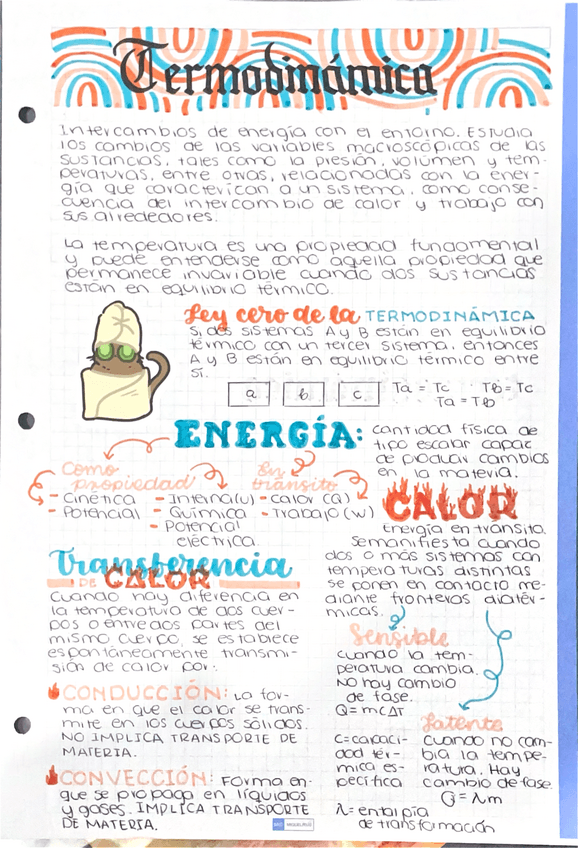 Termodinámica
Intercambios de energía con el entorno. Estudia
los cambios de las variables macroscópicas de las
sustancias, tales como la presión, volúmen y tem-
peraturas, entre otras, relacionadas con la ener-
gía que caracterican a un sistema, como conse-
cuencia del intercambio de calor y trabajo con
sus alrededores.
La temperatura es una propiedad fundamental
y puede entenderse como aquella propiedad que
permanece invariable cuando dos sustancias
están en equilibrio térmico.
Ley cero de la TERMODINÁMICA
Si dos sistemas A y B están en equilibrio
térmico con un tercer sistema, entonces
A y B están en equilibrio térmico entre
sí.
a b c Ta = Tc Tb = Tc
Ta = Tb
ENERGÍA:
cantidad física de
tipo escalar capaz
de producir cambios
en la materia.
Como
propiedad
- Cinética
- Potencial
- Interna (u)
- Química
- Potencial
eléctrica.
En
tránsito
- Calor (Q)
- Trabajo (w)
CALOR
Energía en tránsito.
Se manifiesta cuando
dos o más sistemas con
temperaturas distintas
se ponen en contacto me-
diante fronteras diatér-
micas.
Transferencia
DE CALOR
Cuando hay diferencia en
la temperatura de dos cuer-
pos o entre dos partes del
mismo cuerpo, se establece
espontáneamente transmi-
sión de calor por:
CONDUCCIÓN: La for-
ma en que el calor se trans-
mite en los cuerpos sólidos.
NO IMPLICA TRANSPORTE DE
MATERIA.
CONVECCIÓN: Forma en
que se propaga en líquidos
y gases. IMPLICA TRANSPORTE
DE MATERIA.
Sensible
cuando la tem-
peratura cambia.
No hay cambio
de fase.
Q = mCΔT
C = capaci-
dad tér-
mica es-
pecífica
Latente
Cuando no cam-
bia la tempe-
ratura. Hay
cambio de fase.
Q = λm
λ = entalpía
de transformación